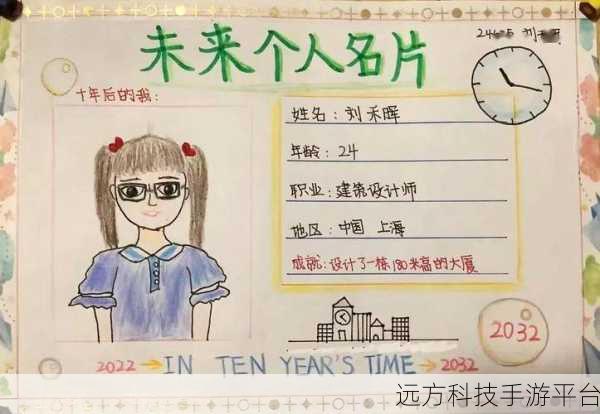 未来个人名片
十年后的我:
姓名: 刘禾晖
年龄: 24
职业: 建筑设计师
地区: 中国 上海
成就: 设计了一栋180米高的大厦
2032
2022→IN TEN YEAR'S TIME→2032
远方科技手游平台